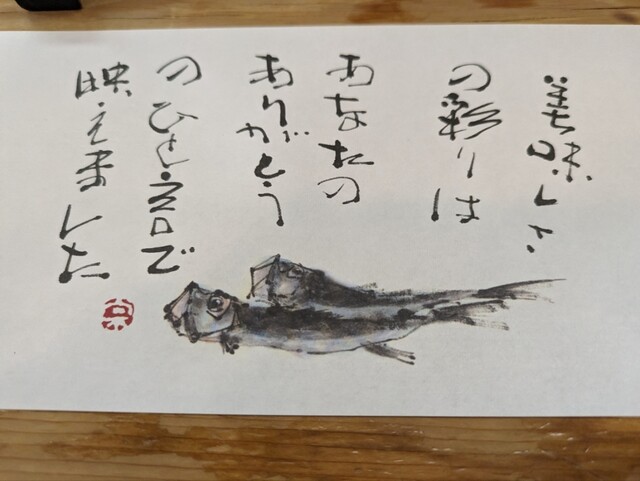 美味しさ
の彩りは
あなたの
ありがとう
のひと言で
映えました